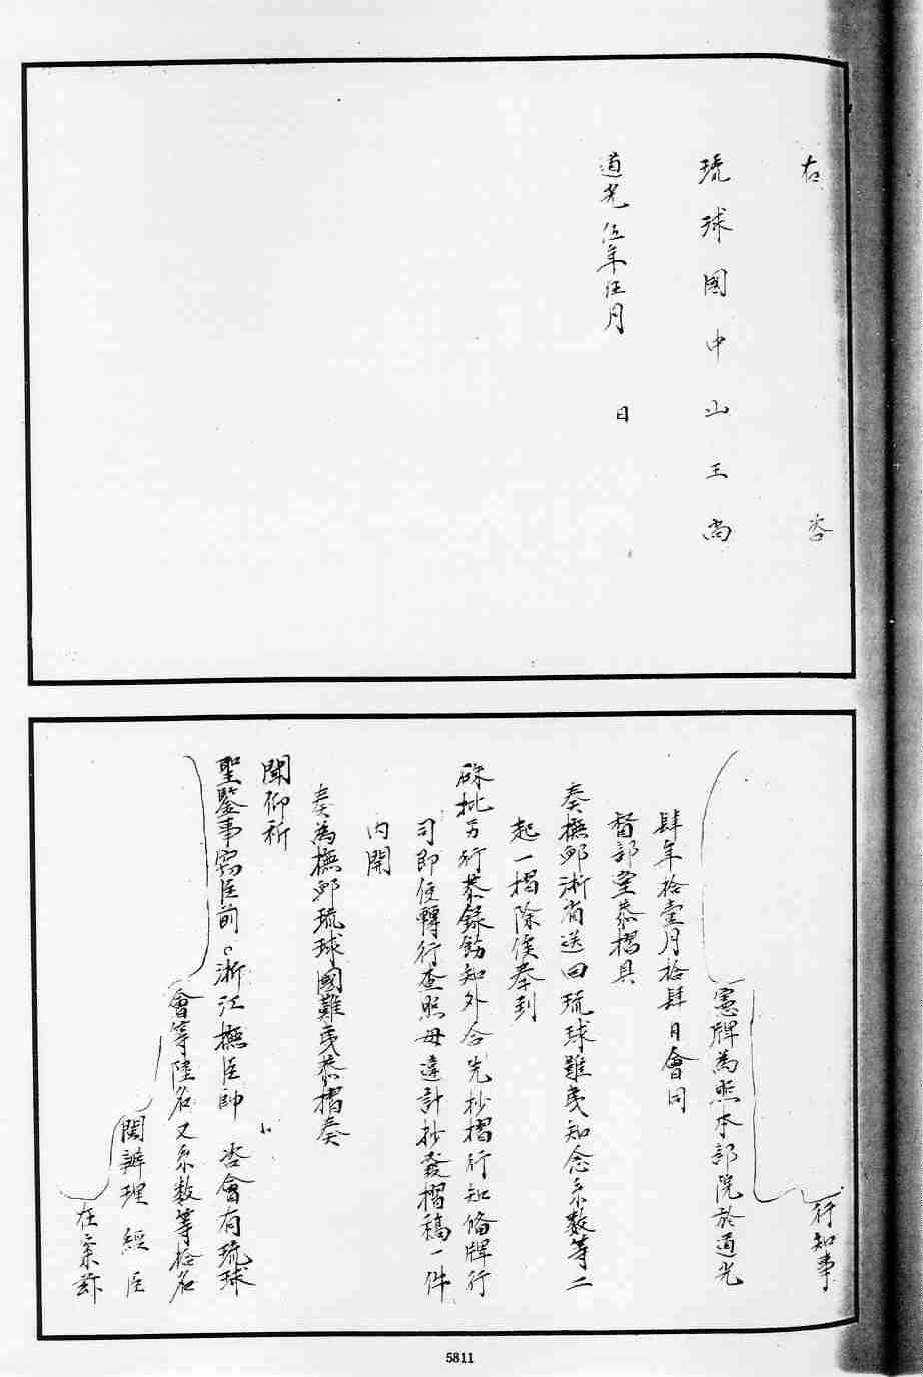 右 咨
琉球國中山王尚
道光伍年伍月 日
行知事
憲牌為照本部院於道光
肆年拾壹月拾肆日會同
督部堂恭摺具
奏撫卹浙省送回琉球難夷知念糸数等二
起一摺除俟奉到
硃批另行恭錄飭知外合先抄摺行知俻牌行
司即便轉行查照毋違計抄發摺稿一件
内開
奏為撫卹琉球國難夷恭摺奏
聞仰祈
聖鑒事竊臣前 浙江撫臣帥 咨會有琉球
會等陸名又糸数等拾名
閩辦理 經臣
在案茲
5811